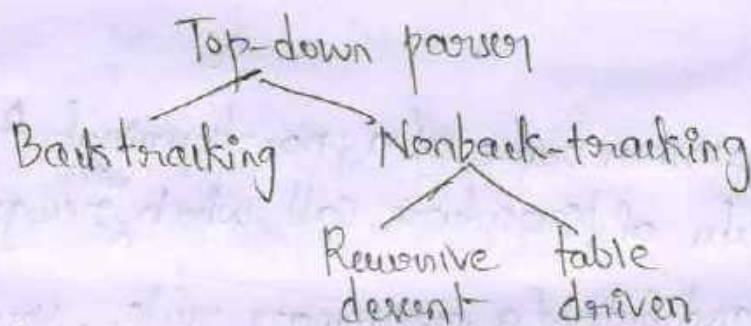 Top-down parser
Backtracking Nonback-tracking
Recursive table
descent driven